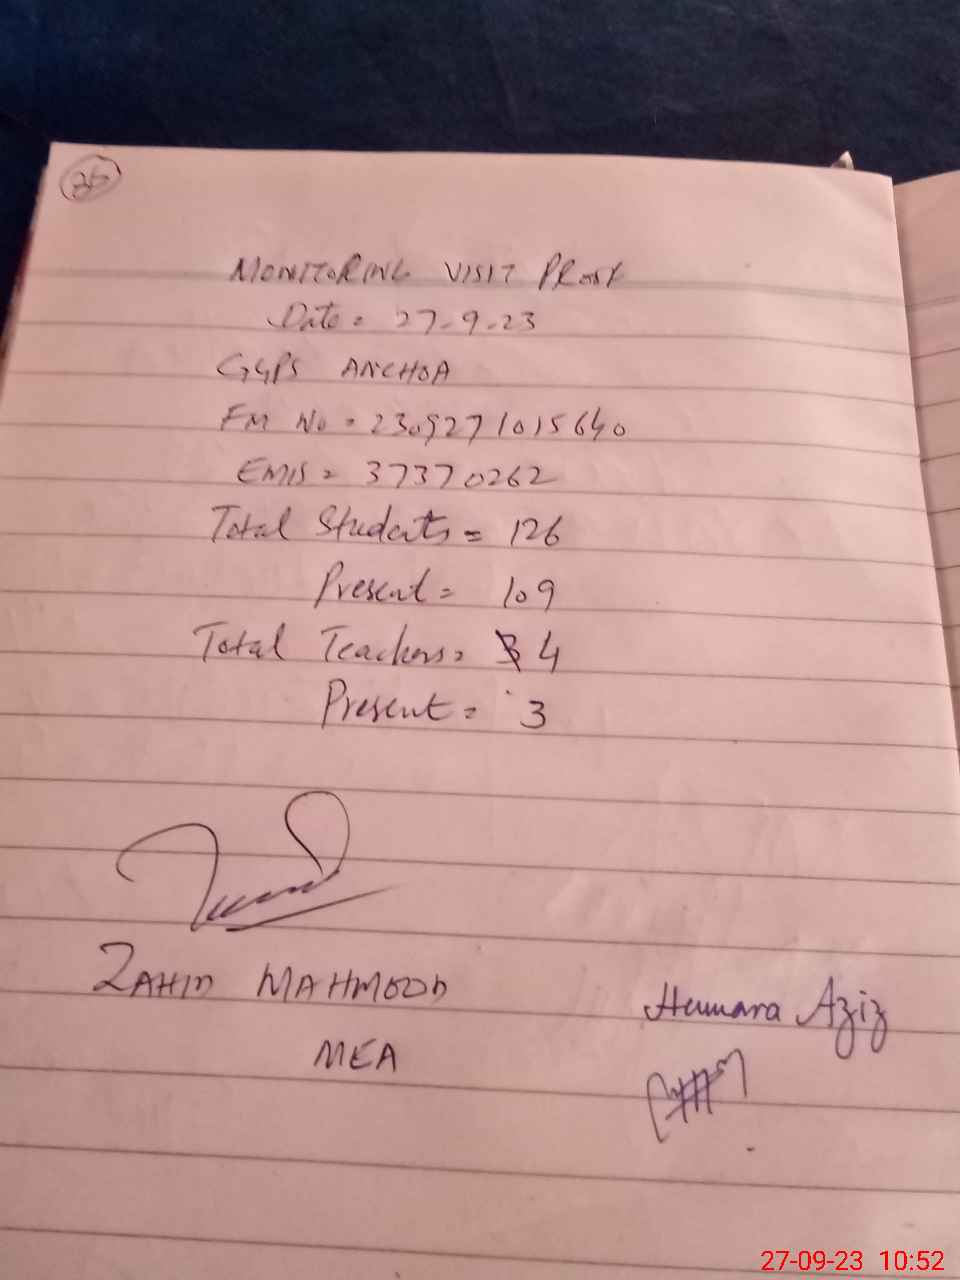 36
MONITORING VISIT PROOF
Date = 27-9-23
GGPS ANCHOA
FM No = 2309271015640
EMIS = 37370262
Total Students = 126
Present = 109
Total Teachers = 4
Present = 3
ZAHID MAHMOOD
MEA
Humara Aziz
27-09-23 10:52